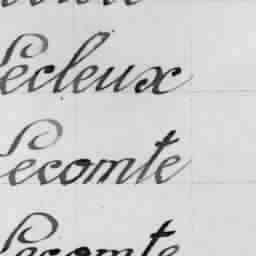 Lecleux
Lecomte
Lecomte